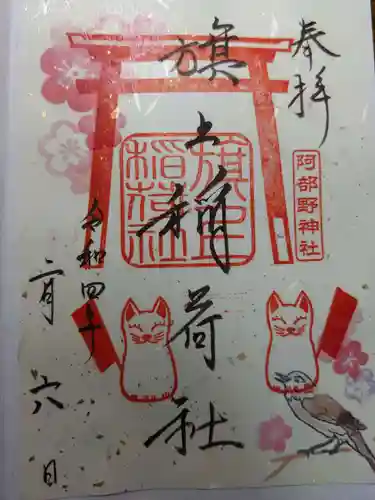 奉拝
阿部野神社
旗上稲荷社
旗上
稲荷社
令和四年
二月
六日